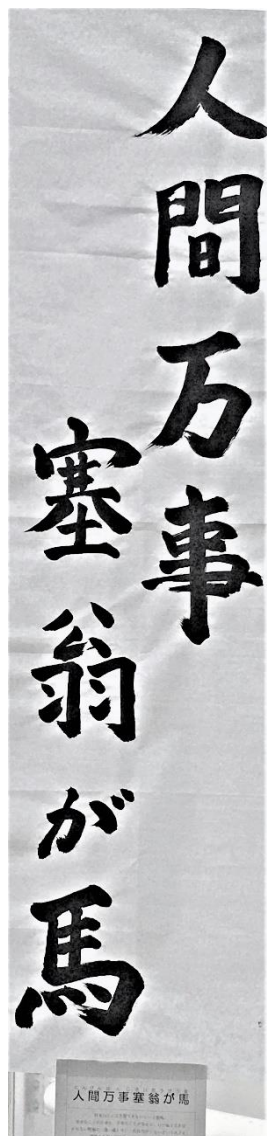 人間万事
塞翁が馬
人間万事塞翁が馬